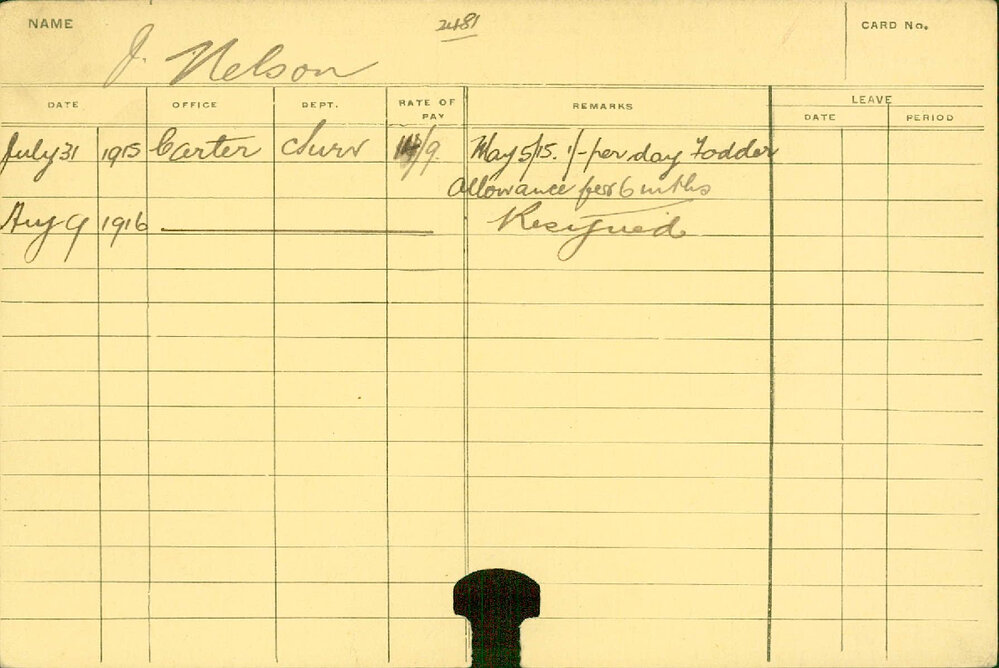 NAME
2481
CARD No.
J. Nelson
DATE OFFICE DEPT. RATE OF PAY REMARKS LEAVE
DATE PERIOD
July 31 1915 Carter Surv /9 May 5/15. 1/- per day Fodder
Allowance for 6 mths
Aug 9 1916 Resigned